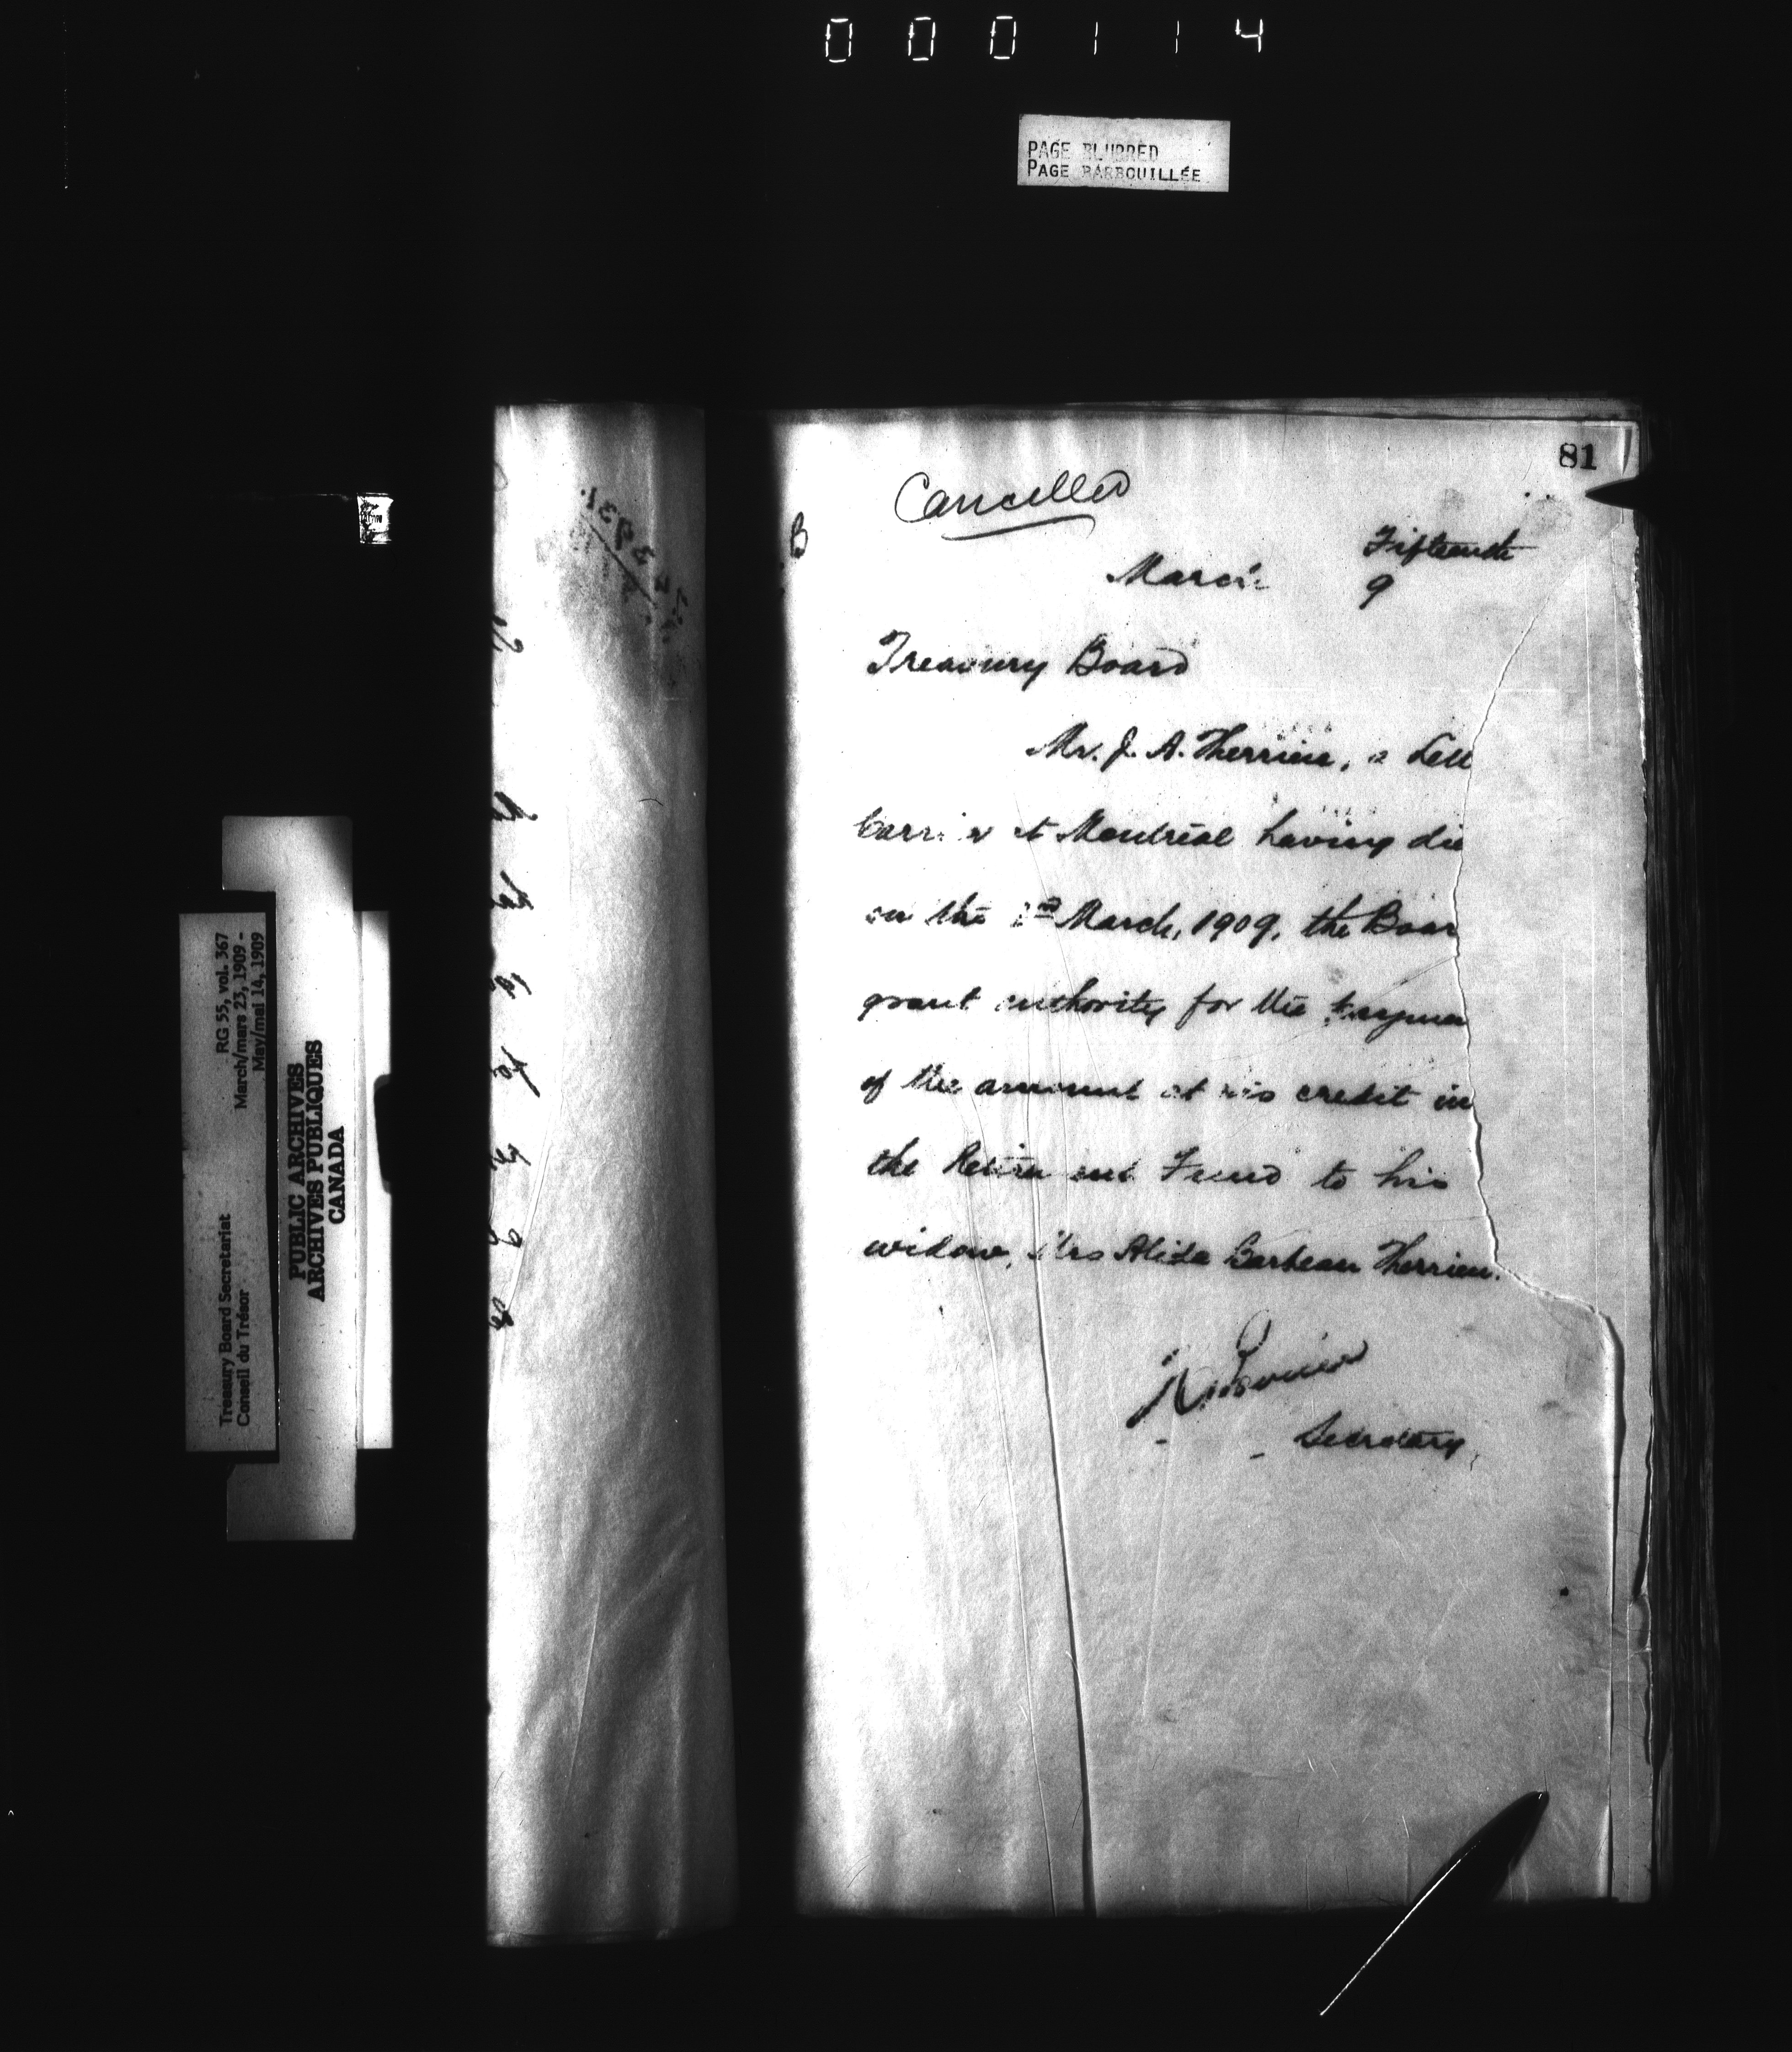 000114
PAGE BLURRED
PAGE BARBOUILLÉE
81
Cancelled
B
Fifteenth
March 9
Treasury Board
Mr. J. A. Therrien, a Lett
Carrier at Montreal having die
on the March, 1909, the Boar
grant authority for the paymen
of the amount at his credit in
the Retirement Fund to his
widow, Mrs Alida Barbeau Therrien.
Secretary
RG 55, vol. 367
March/mars 23, 1909 -
May/mai 14, 1909
Treasury Board Secretariat
Conseil du Trésor
PUBLIC ARCHIVES
ARCHIVES PUBLIQUES
CANADA